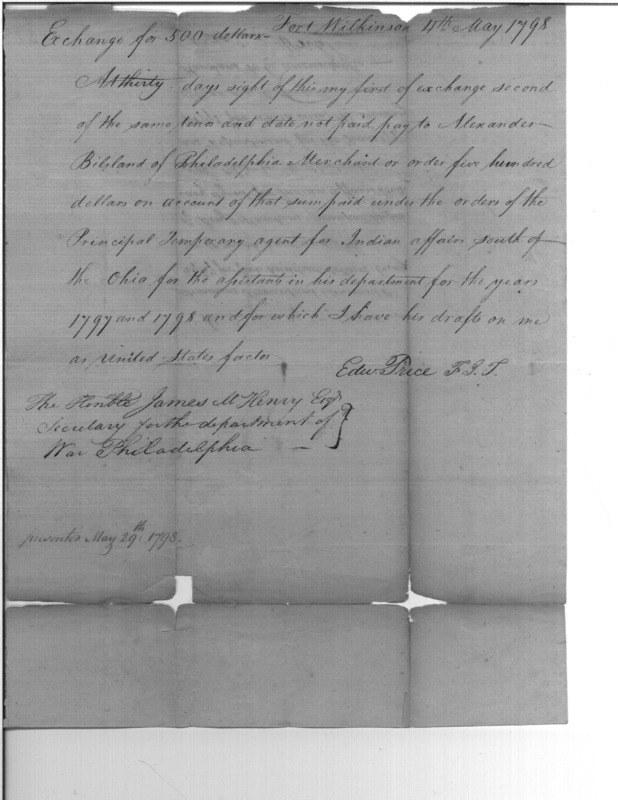 Exchange for 500 dollars - Fort Wilkinson 4th May 1798
At thirty days sight of this my first of exchange second
of the same tenor and date not paid pay to Alexander
Bilsland of Philadelphia Merchant or order five hundred
dollars on account of that sum paid under the orders of the
Principal Temporary agent for Indian affairs south of
the Ohio for the assistants in his department for the years
1797 and 1798 and for which I have his drafts on me
as United States factor
Edwd Price F.I.T.
The Honble James McHenry Esqr
Secretary for the department of
War Philadelphia —
presented May 29th 1798.